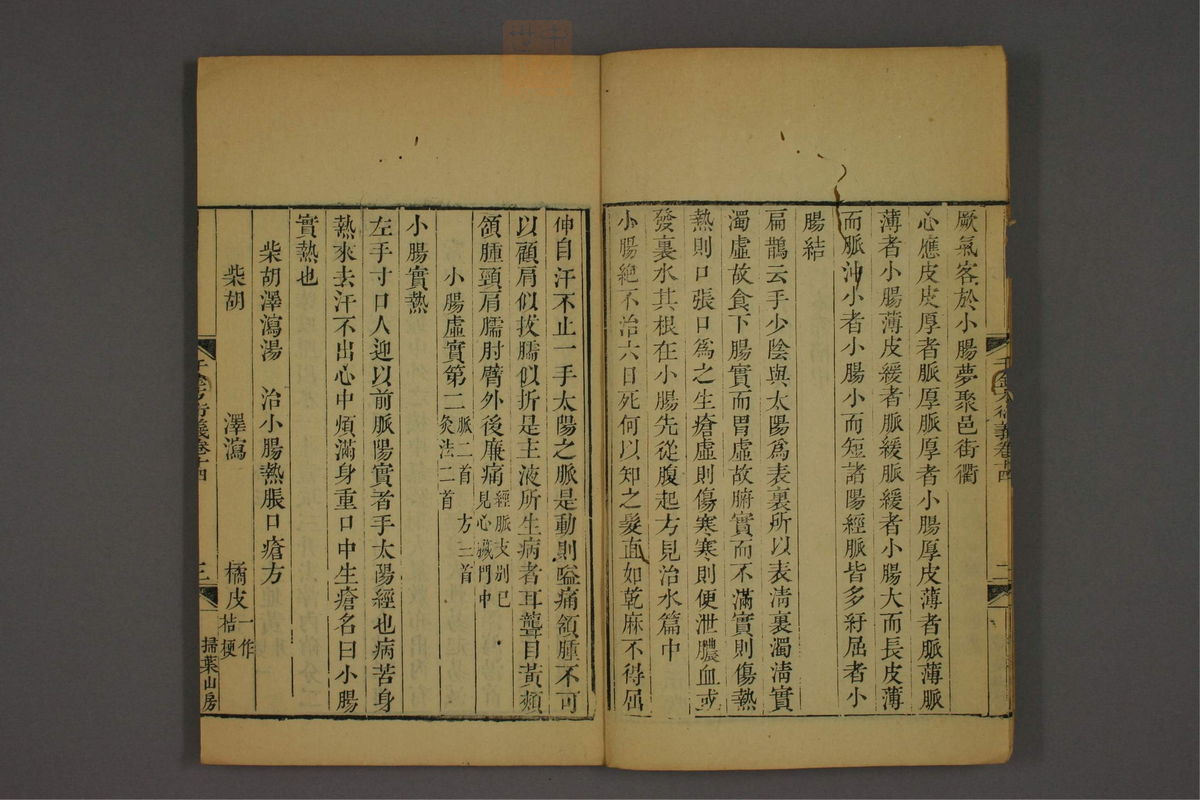 厥氣客於小腸夢聚邑街衢
心應皮皮厚者脈厚脈厚者小腸厚皮薄者脈薄脈
薄者小腸薄皮緩者脈緩脈緩者小腸大而長皮薄
而脈沖小者小腸小而短諸陽經脈皆多紆屈者小
腸結
扁鵲云手少陰與太陽為表裏所以表淸裏濁淸實
濁虛故食下腸實而胃虛故腑實而不滿實則傷熱
熱則口張口為之生瘡虛則傷寒寒則便泄膿血或
發裏水其根在小腸先從腹起方見治水篇中
小腸絕不治六日死何以知之髮直如乾麻不得屈
千金方衍義卷十四
二
伸自汗不止一手太陽之脈是動則嗌痛頷腫不可
以顧肩似拔臑似折是主液所生病者耳聾目黃頰
頷腫頸肩臑肘臂外後廉痛經脈支别已見心臟門中
小腸虛實第二脈二首方三首灸法二首
小腸實熱
左手寸口人迎以前脈陽實者手太陽經也病苦身
熱來去汗不出心中煩滿身重口中生瘡名曰小腸
實熱也
柴胡澤瀉湯 治小腸熱脹口瘡方
柴胡 澤瀉 橘皮一作桔梗
千金方衍義卷十四
三
掃葉山房